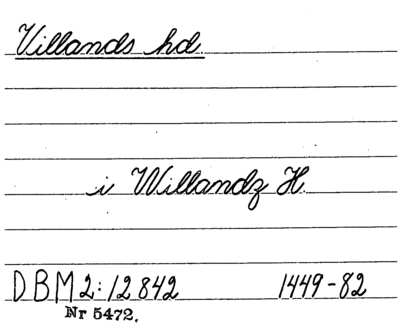 Villands hd.
i Willandz H.
DBM 2:12842 1449-82
Nr 5472.